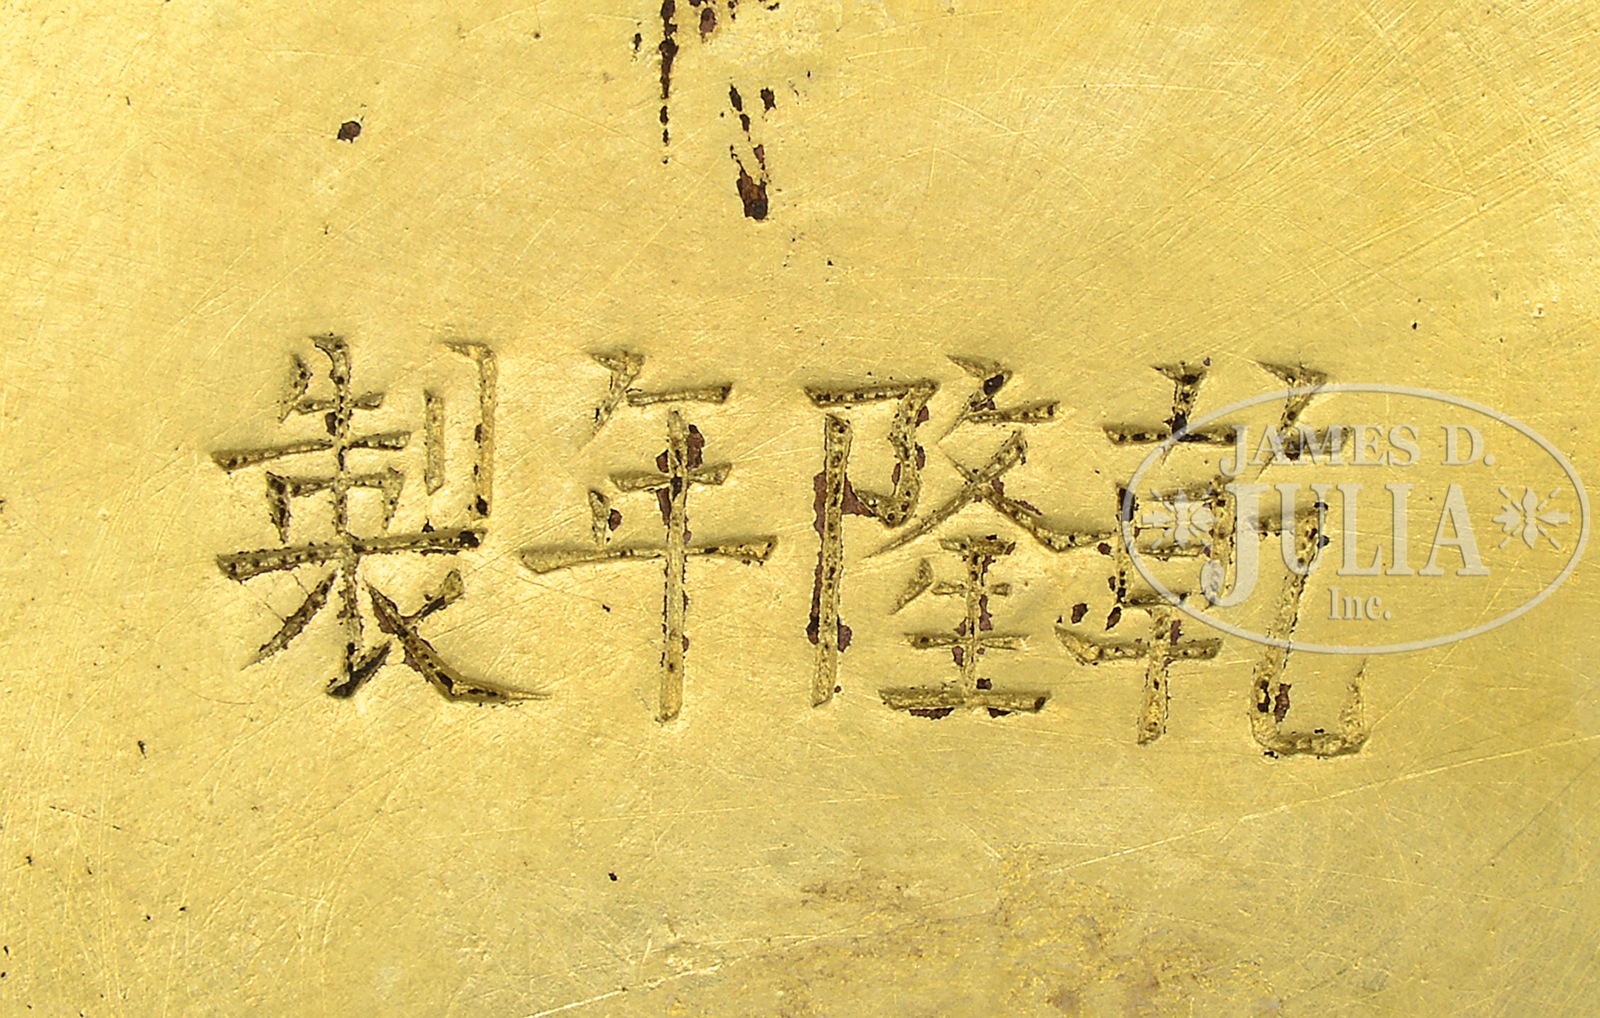 乾隆年製
JAMES D.
JULIA
Inc.